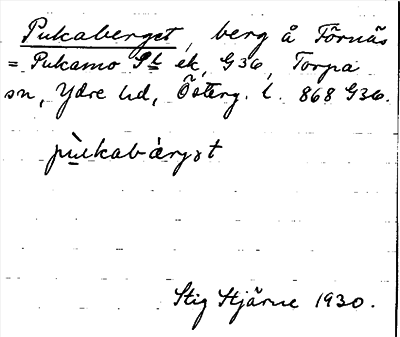 Pukaberget, berg å Förnäs
= Pukamo Sk ek, G36, Torpa
sn, Ydre hd, Österg. l. 868 G36.
pùkabàrgət
Stig Stjärne 1930.